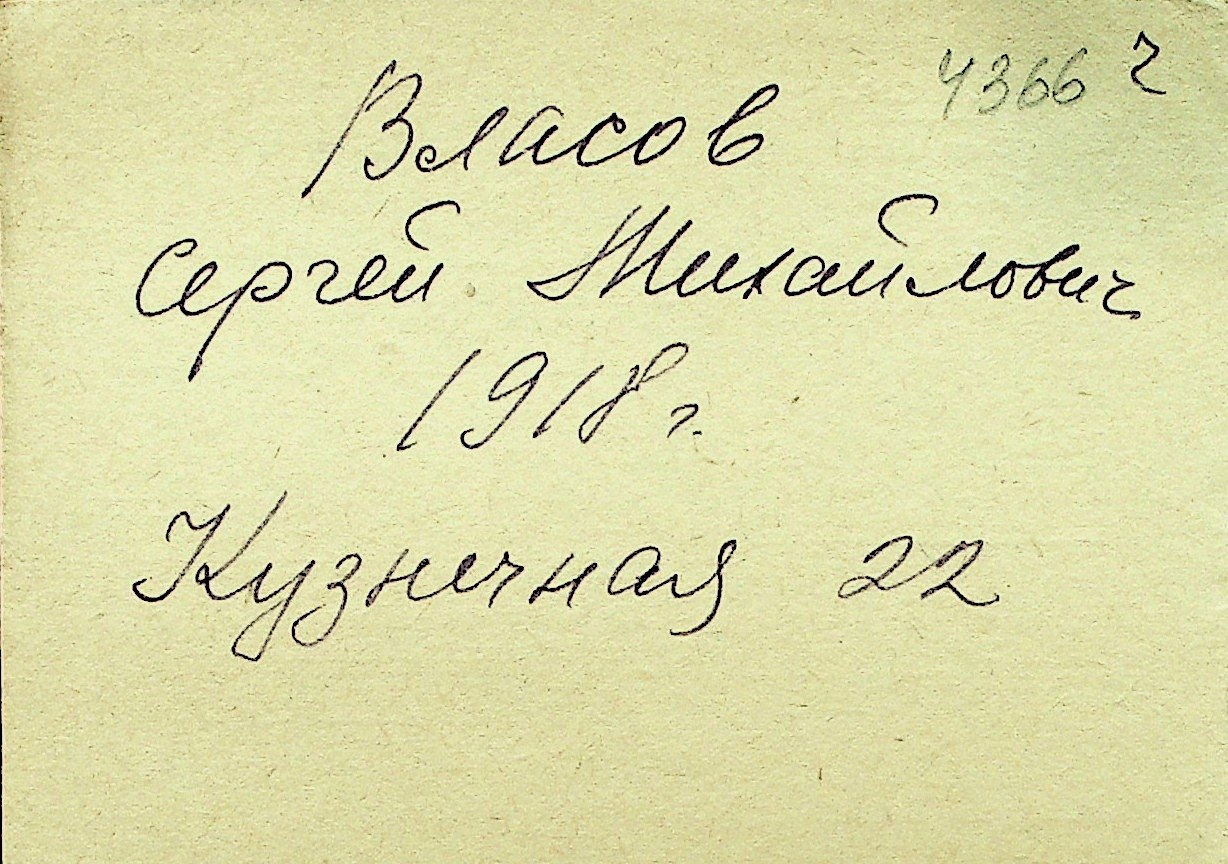 4366 ч
Власов
Сергей Михайлович
1918 г.
Кузнечная 22